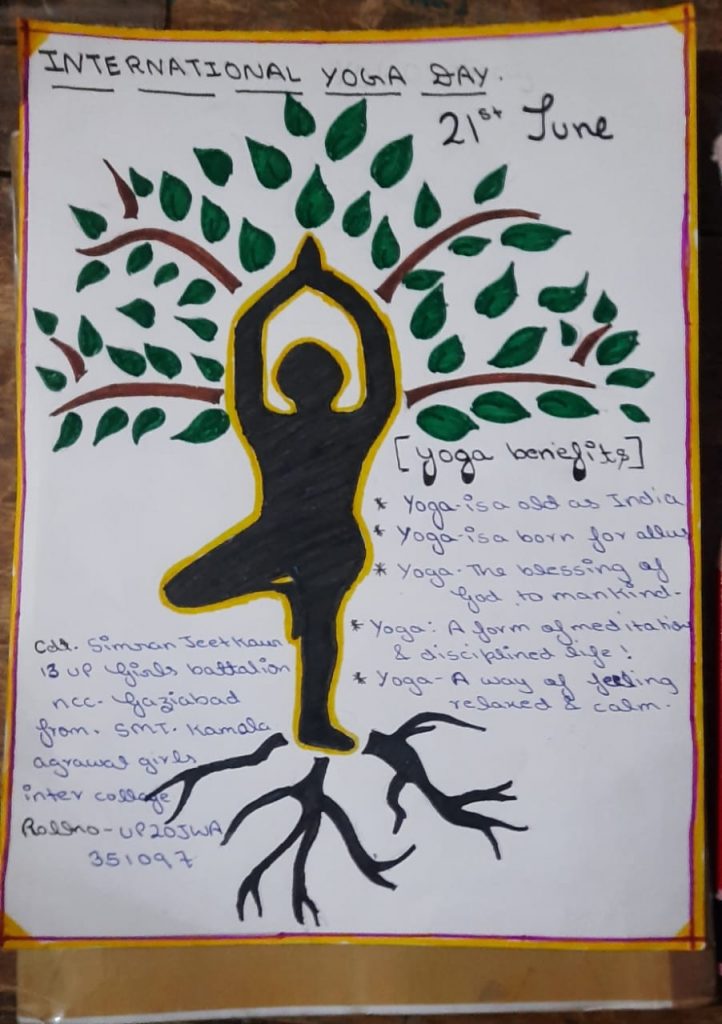 INTERNATIONAL YOGA DAY.
21st June
[yoga benefits]
* Yoga-is a old as India
* Yoga-is a born for all us
* Yoga-The blessing of
God to mankind-
* Yoga: A form of meditation
& disciplined life!
* Yoga-A way of feeling
relaxed & calm.
Cdt. Simran Jeet Kaur
13 UP Girls battalion
ncc-Gaziabad
from. SMT. Kamala
agrawal girls
inter collage
Rollno-UP20JWA
351097